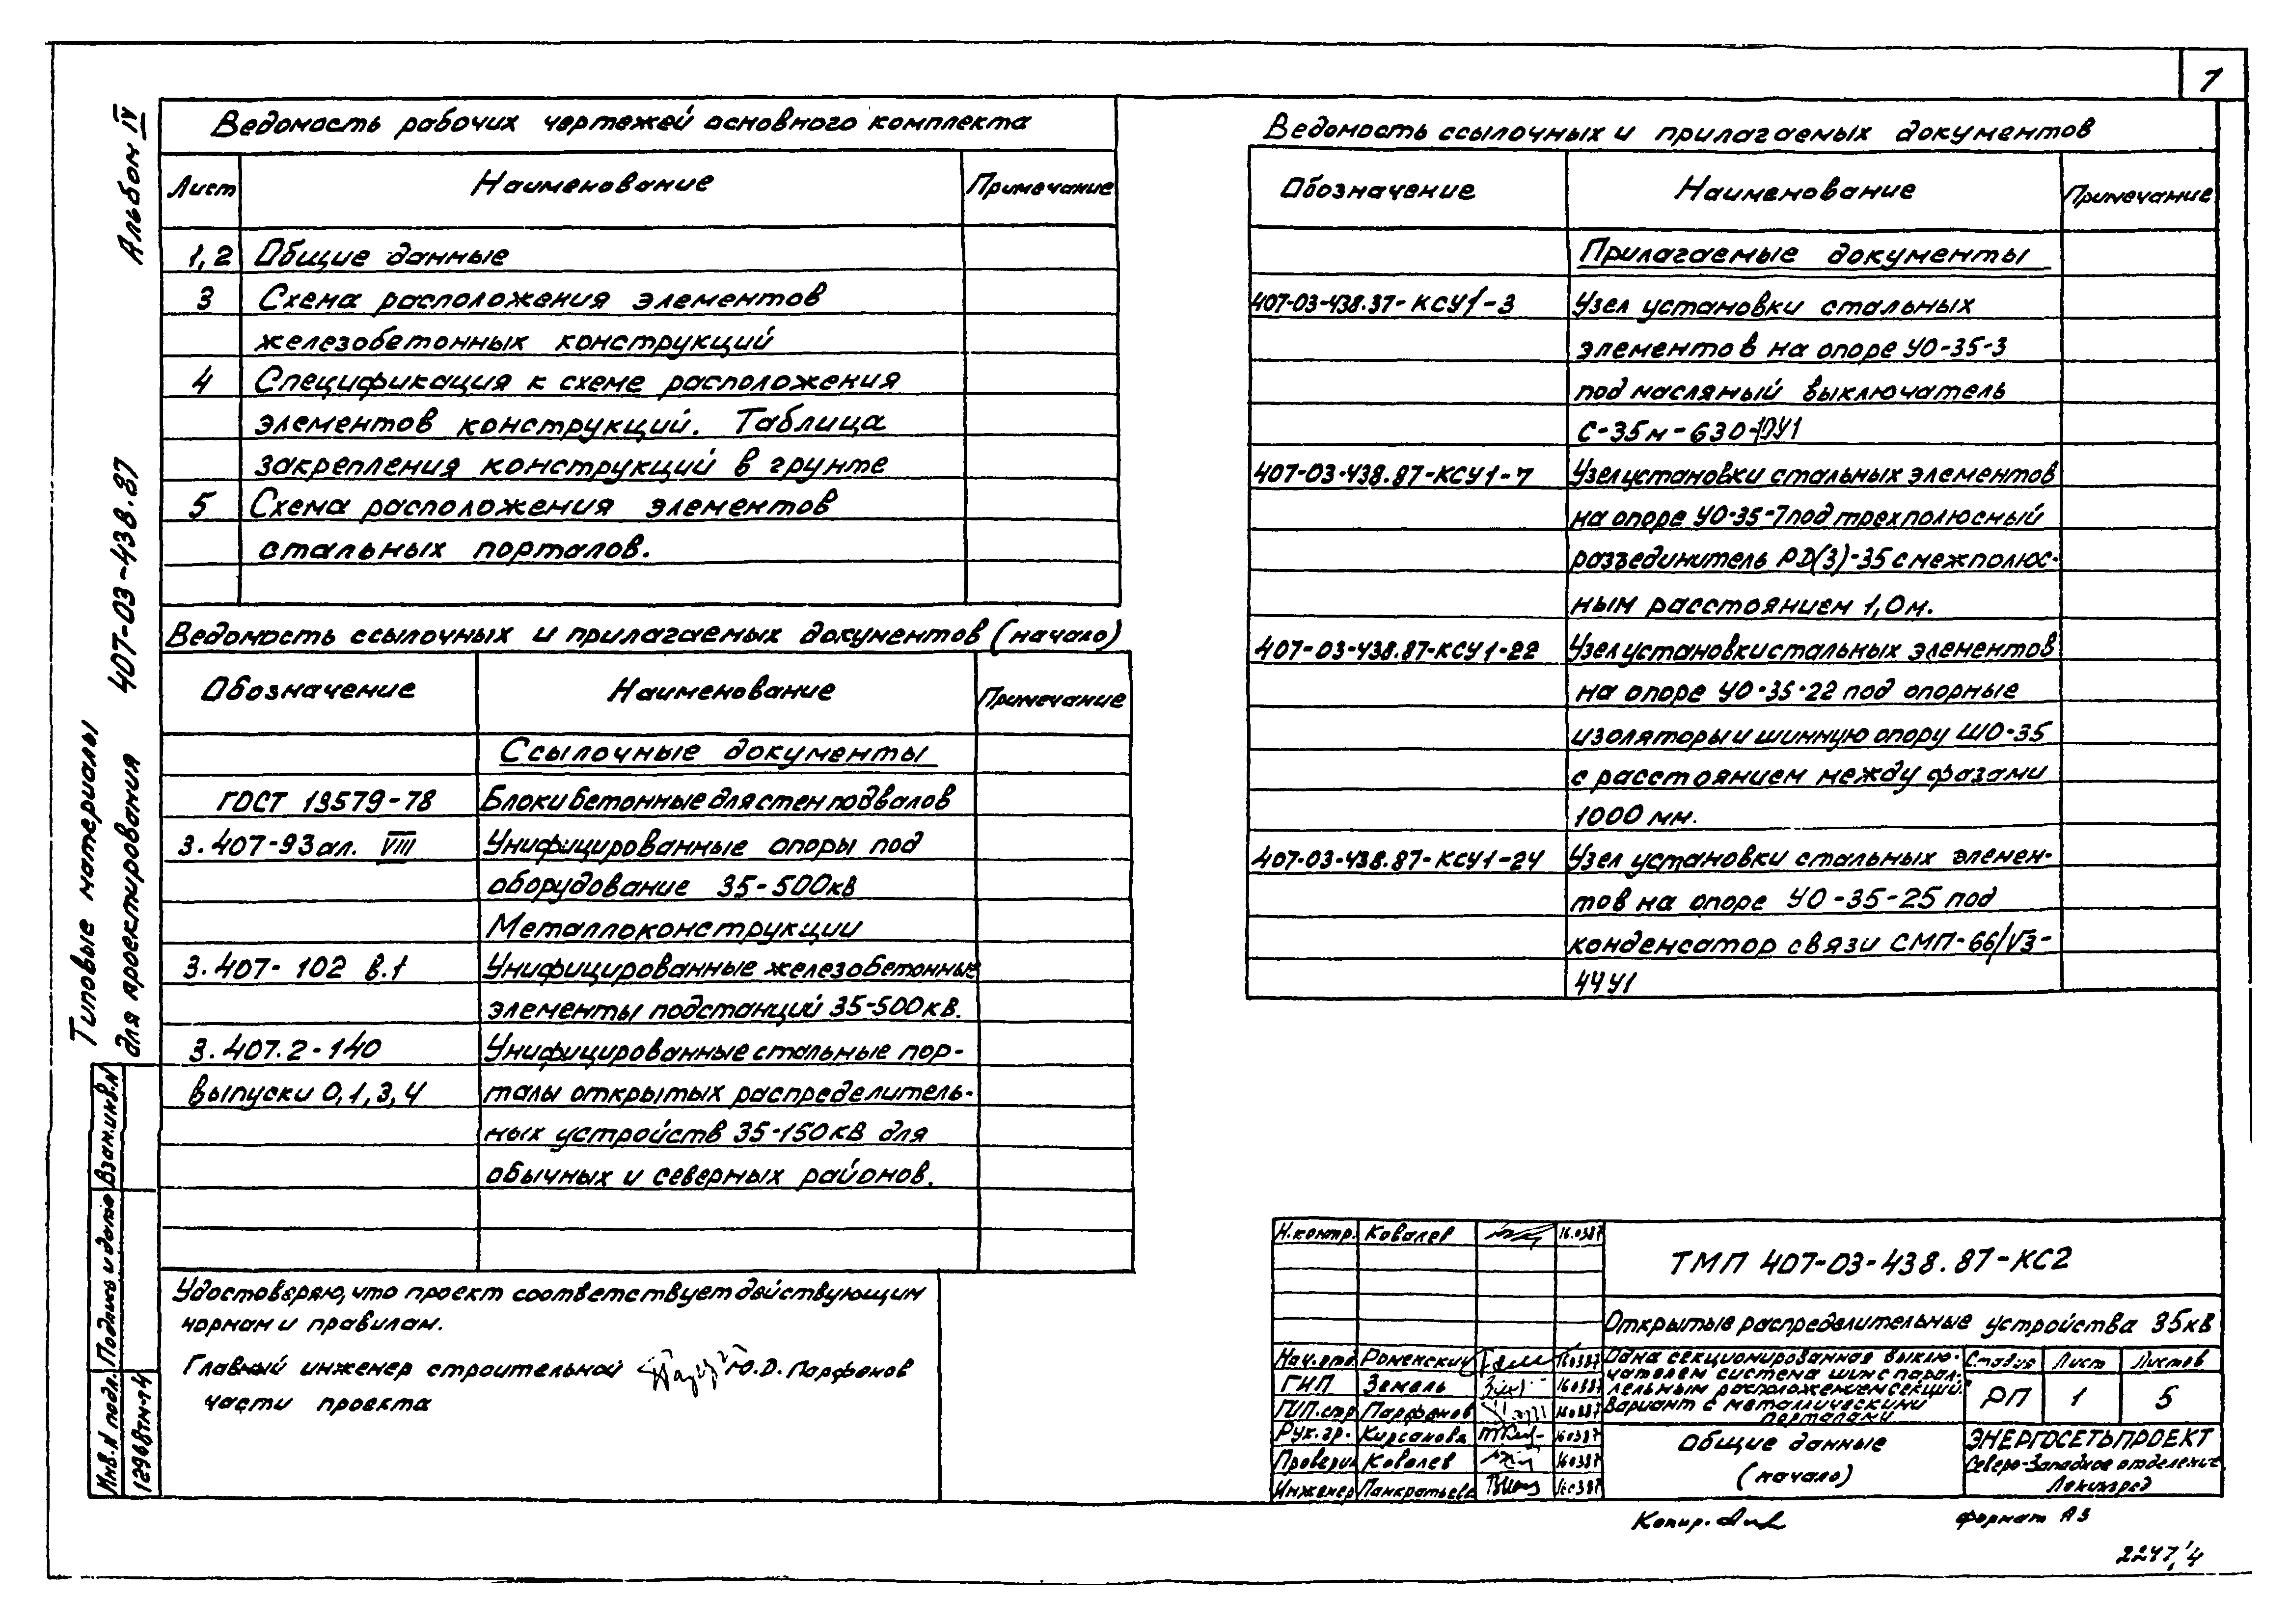 7
Альбом IV
407-03-438.87
Типовые материалы
для проектирования
Ведомость рабочих чертежей основного комплекта
Лист Наименование Примечание
1,2 Общие данные
3 Схема расположения элементов
железобетонных конструкций
4 Спецификация к схеме расположения
элементов конструкций. Таблица
закрепления конструкций в грунте
5 Схема расположения элементов
стальных порталов.
Ведомость ссылочных и прилагаемых документов (начало)
Обозначение Наименование Примечание
Ссылочные документы
ГОСТ 13579-78 Блоки бетонные для стен подвалов
3.407-93 ал. VIII Унифицированные опоры под
оборудование 35-500кв
Металлоконструкции
3.407-102 в.1 Унифицированные железобетонные
элементы подстанций 35-500кв.
3.407.2-140 Унифицированные стальные пор-
выпуски 0,1,3,4 талы открытых распределитель-
ных устройств 35-150кв для
обычных и северных районов.
Удостоверяю, что проект соответствует действующим
нормам и правилам.
Главный инженер строительной Ю.D. Парфенов
части проекта
Взам.инв.N
Подпись и дата
Инв.N подл.
12968тм-т4
Ведомость ссылочных и прилагаемых документов
Обозначение Наименование Примечание
Прилагаемые документы
407-03-438.37-КСУ1-3 Узел установки стальных
элементов на опоре УО-35-3
под масляный выключатель
С-35м-630-10У1
407-03-438.87-КСУ1-7 Узел установки стальных элементов
на опоре УО-35-7 под трехполюсный
разъединитель РД(3)-35 с межполюс-
ным расстоянием 1,0м.
407-03-438.87-КСУ1-22 Узел установки стальных элементов
на опоре УО-35-22 под опорные
изоляторы и шинную опору ШО-35
с расстоянием между фазами
1000 мм.
407-03-438.87-КСУ1-24 Узел установки стальных элемен-
тов на опоре УО-35-25 под
конденсатор связи СМП-66/√3-
44У1
Н.контр. Ковалев 16.0387
ТМП 407-03-438.87-КС2
Открытые распределительные устройства 35кв
Нач.отд. Роменский 160387
ГИП Земель 160387
ГИП.стр Парфенов 160387
Рук.гр. Кирсанова 160387
Проверил Ковалев 160387
Инженер Панкратьева 160387
Одна секционированная выклю-
чателем система шин с парал-
лельным расположением секций.
Вариант с металлическими
порталами
Стадия Лист Листов
РП 1 5
Общие данные
(начало)
ЭНЕРГОСЕТЬПРОЕКТ
Северо-Западное отделение
Ленинград
Копир.
формат А3